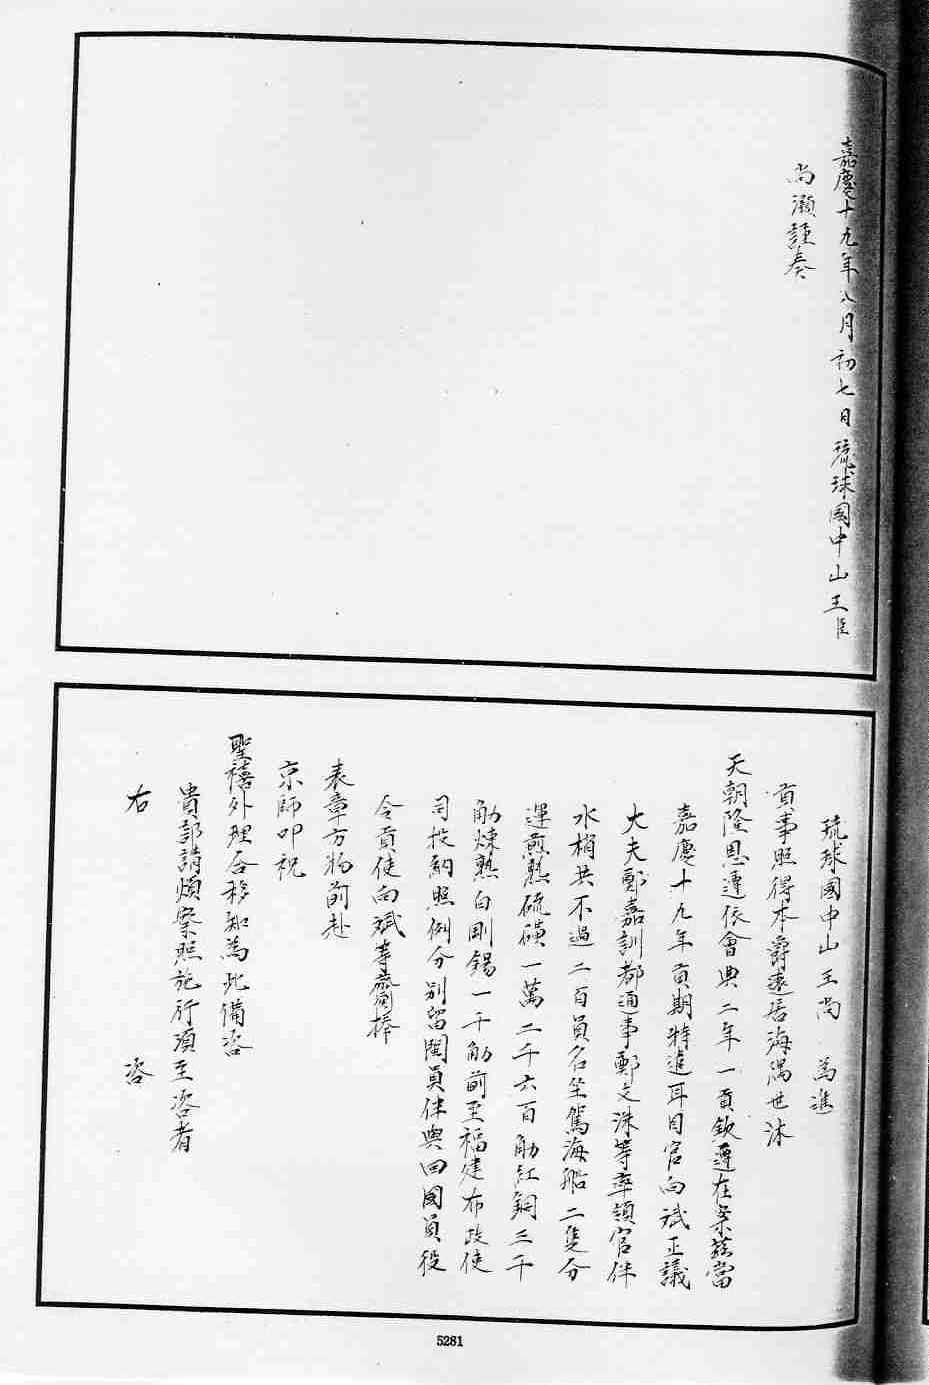 嘉慶十九年八月初七日琉球國中山王臣
尚灝謹奏
琉球國中山王尚　為進
貢事照得本爵遠居海隅世沐
天朝隆恩遵依會典二年一貢欽遵在案茲當
嘉慶十九年貢期特進耳目官向斌正議
大夫鄭嘉訓都通事鄭文洙等率領官伴
水梢共不過二百員名坐駕海船二隻分
運煎熟硫磺一萬二千六百觔紅銅三千
觔煉熟白剛錫一千觔前至福建布政使
司投納照例分別留閩員伴與回國員役
令貢使向斌等齎捧
表章方物前赴
京師叩祝
聖禧外理合移知為此備咨
貴部請煩察照施行須至咨者
右　　　　咨
5281